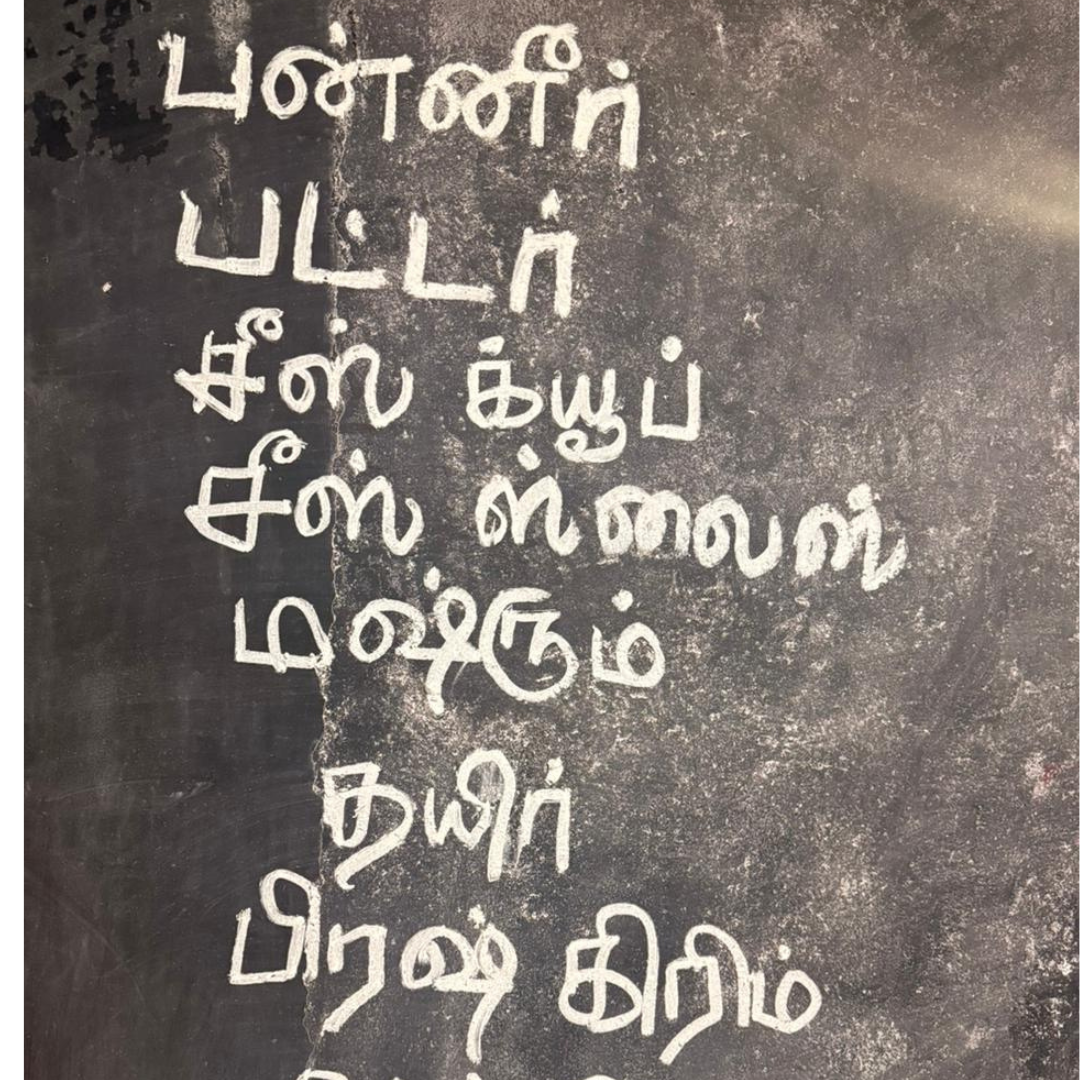 பன்னீர்
பட்டர்
சீஸ் க்யூப்
சீஸ் ஸ்லைஸ்
மஷ்ரூம்
தயிர்
பிரஷ் கிரிம்